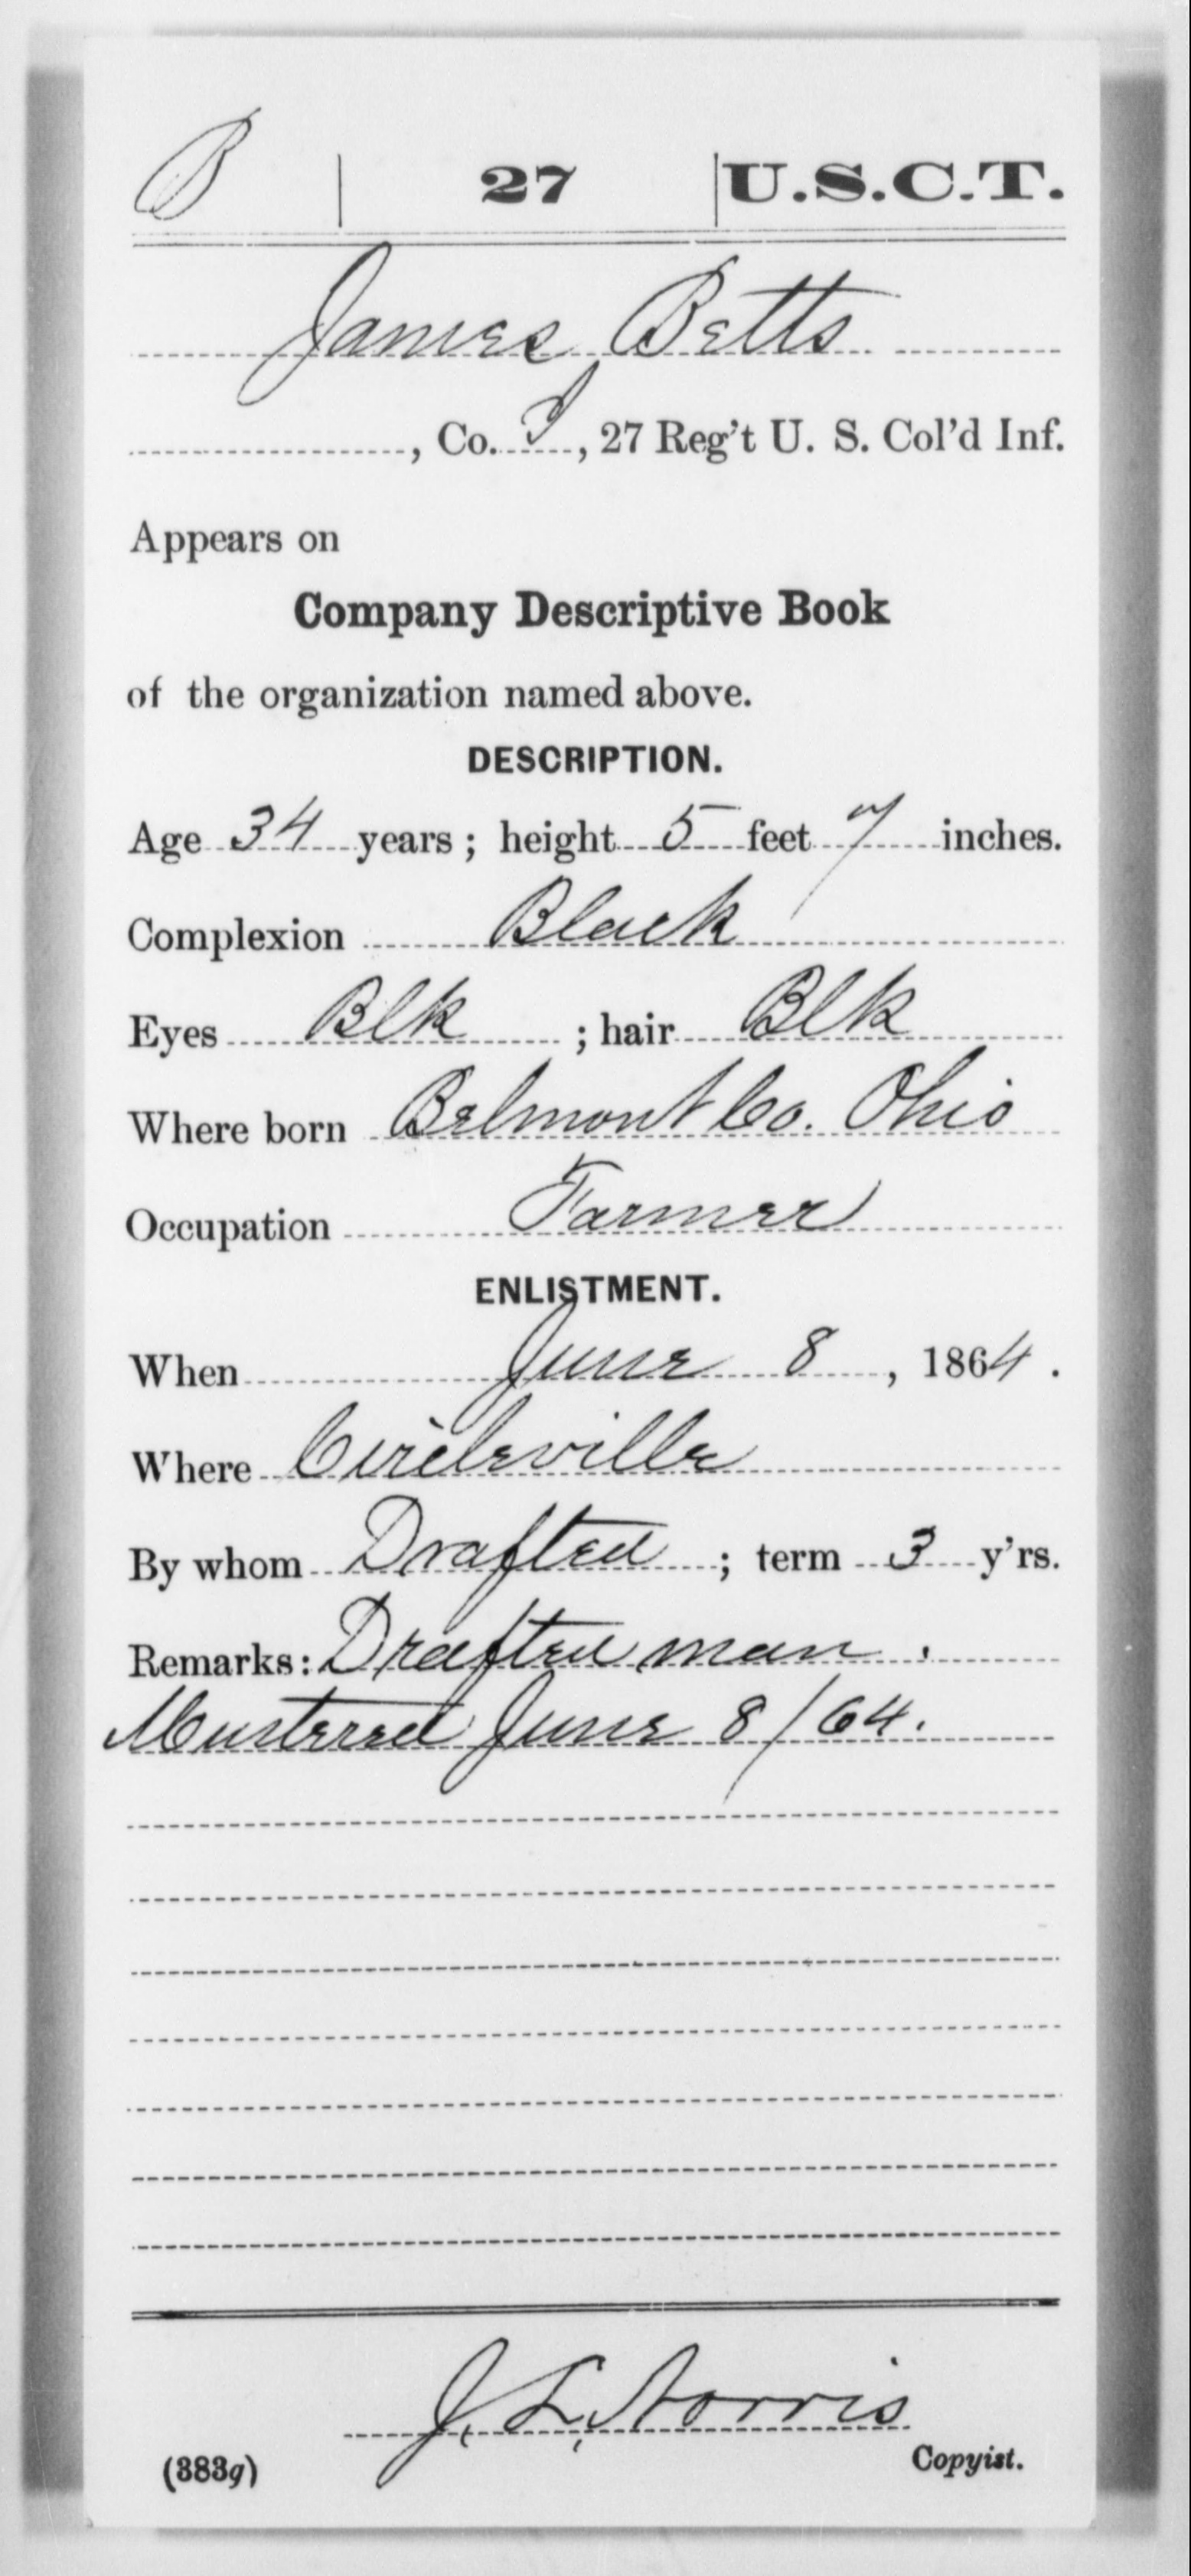 B | 27 | U.S.C.T.
James Betts
, Co. I, 27 Reg't U. S. Col'd Inf.
Appears on
Company Descriptive Book
of the organization named above.
DESCRIPTION.
Age 34 years; height 5 feet 7 inches.
Complexion Black
Eyes Blk ; hair Blk
Where born Belmont Co. Ohio
Occupation Farmer
ENLISTMENT.
When June 8, 1864.
Where Circleville
By whom Drafted ; term 3 y'rs.
Remarks: Drafted man.
Mustered June 8/64.
J. L. Norris
(383g) Copyist.